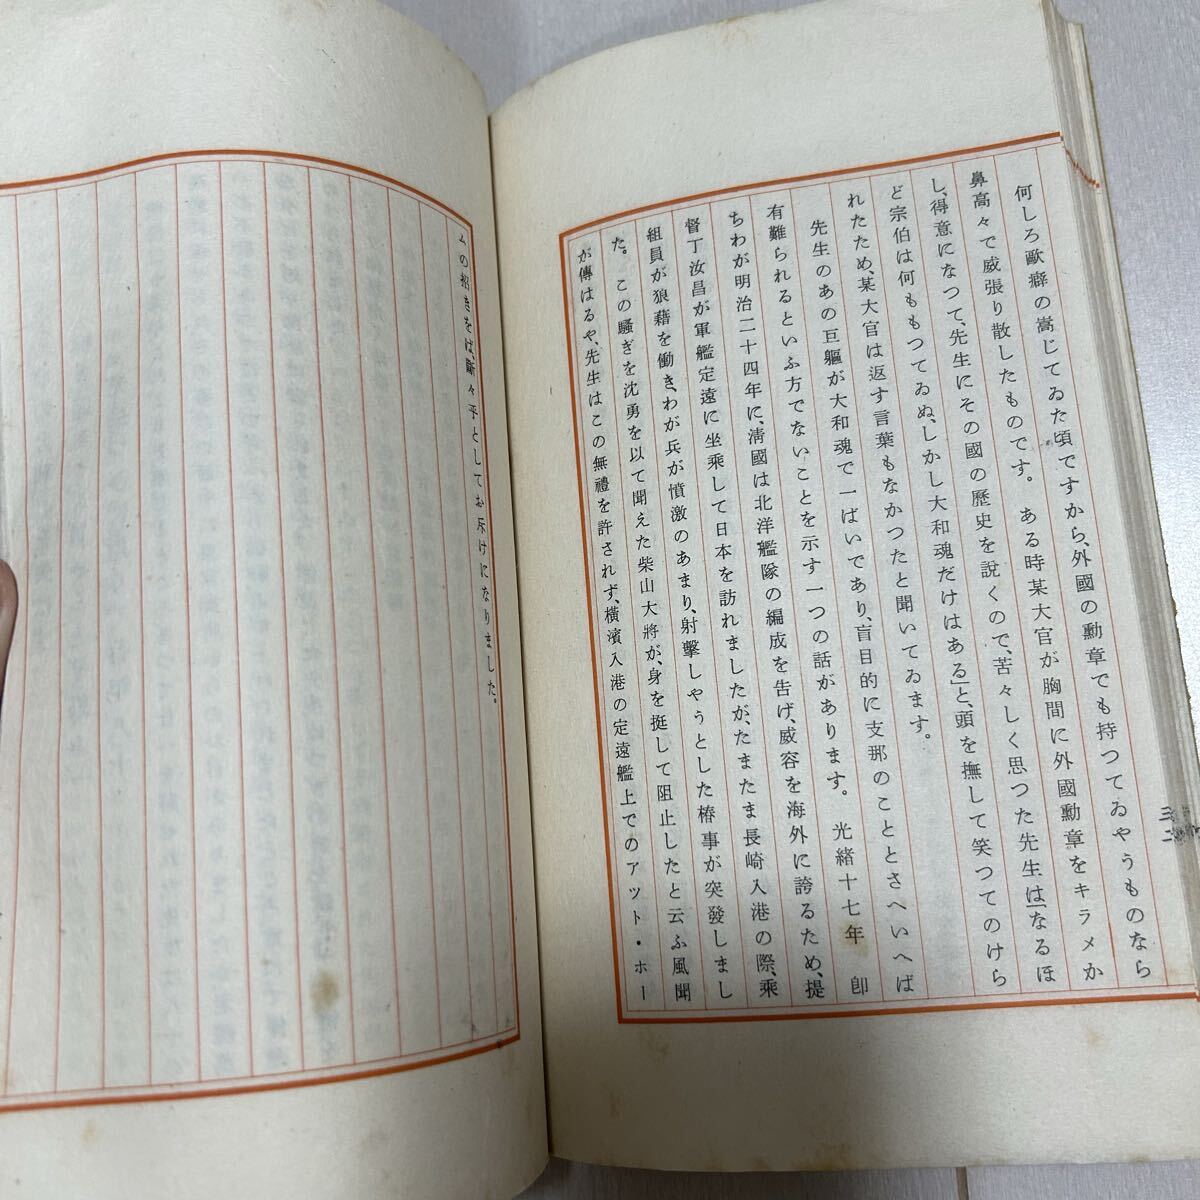 何しろ歐癖の嵩じてゐた頃ですから、外國の勳章でも持つてゐやうものなら
鼻高々で威張り散したものです。ある時某大官が胸間に外國勳章をキラメか
し、得意になつて、先生にその國の歷史を說くので、苦々しく思つた先生は「なるほ
ど宗伯は何ももつてゐぬ、しかし大和魂だけはある」と、頭を撫して笑つてのけら
れたため、某大官は返す言葉もなかつたと聞いてゐます。
先生のあの巨軀が大和魂で一ぱいであり、盲目的に支那のこととさへいへば
有難られるといふ方でないことを示す一つの話があります。光緒十七年 卽
ちわが明治二十四年に、淸國は北洋艦隊の編成を告げ、威容を海外に誇るため、提
督丁汝昌が軍艦定遠に坐乘して日本を訪れましたが、たまたま長崎入港の際、乘
組員が狼藉を働き、わが兵が憤激のあまり、射擊しやうとした椿事が突發しまし
た。この騷ぎを沈勇を以て聞えた柴山大將が、身を挺して阻止したと云ふ風聞
が傳はるや、先生はこの無禮を許されず、橫濱入港の定遠艦上でのアツト・ホー
ムの招きをば、斷々乎としてお斥けになりました。